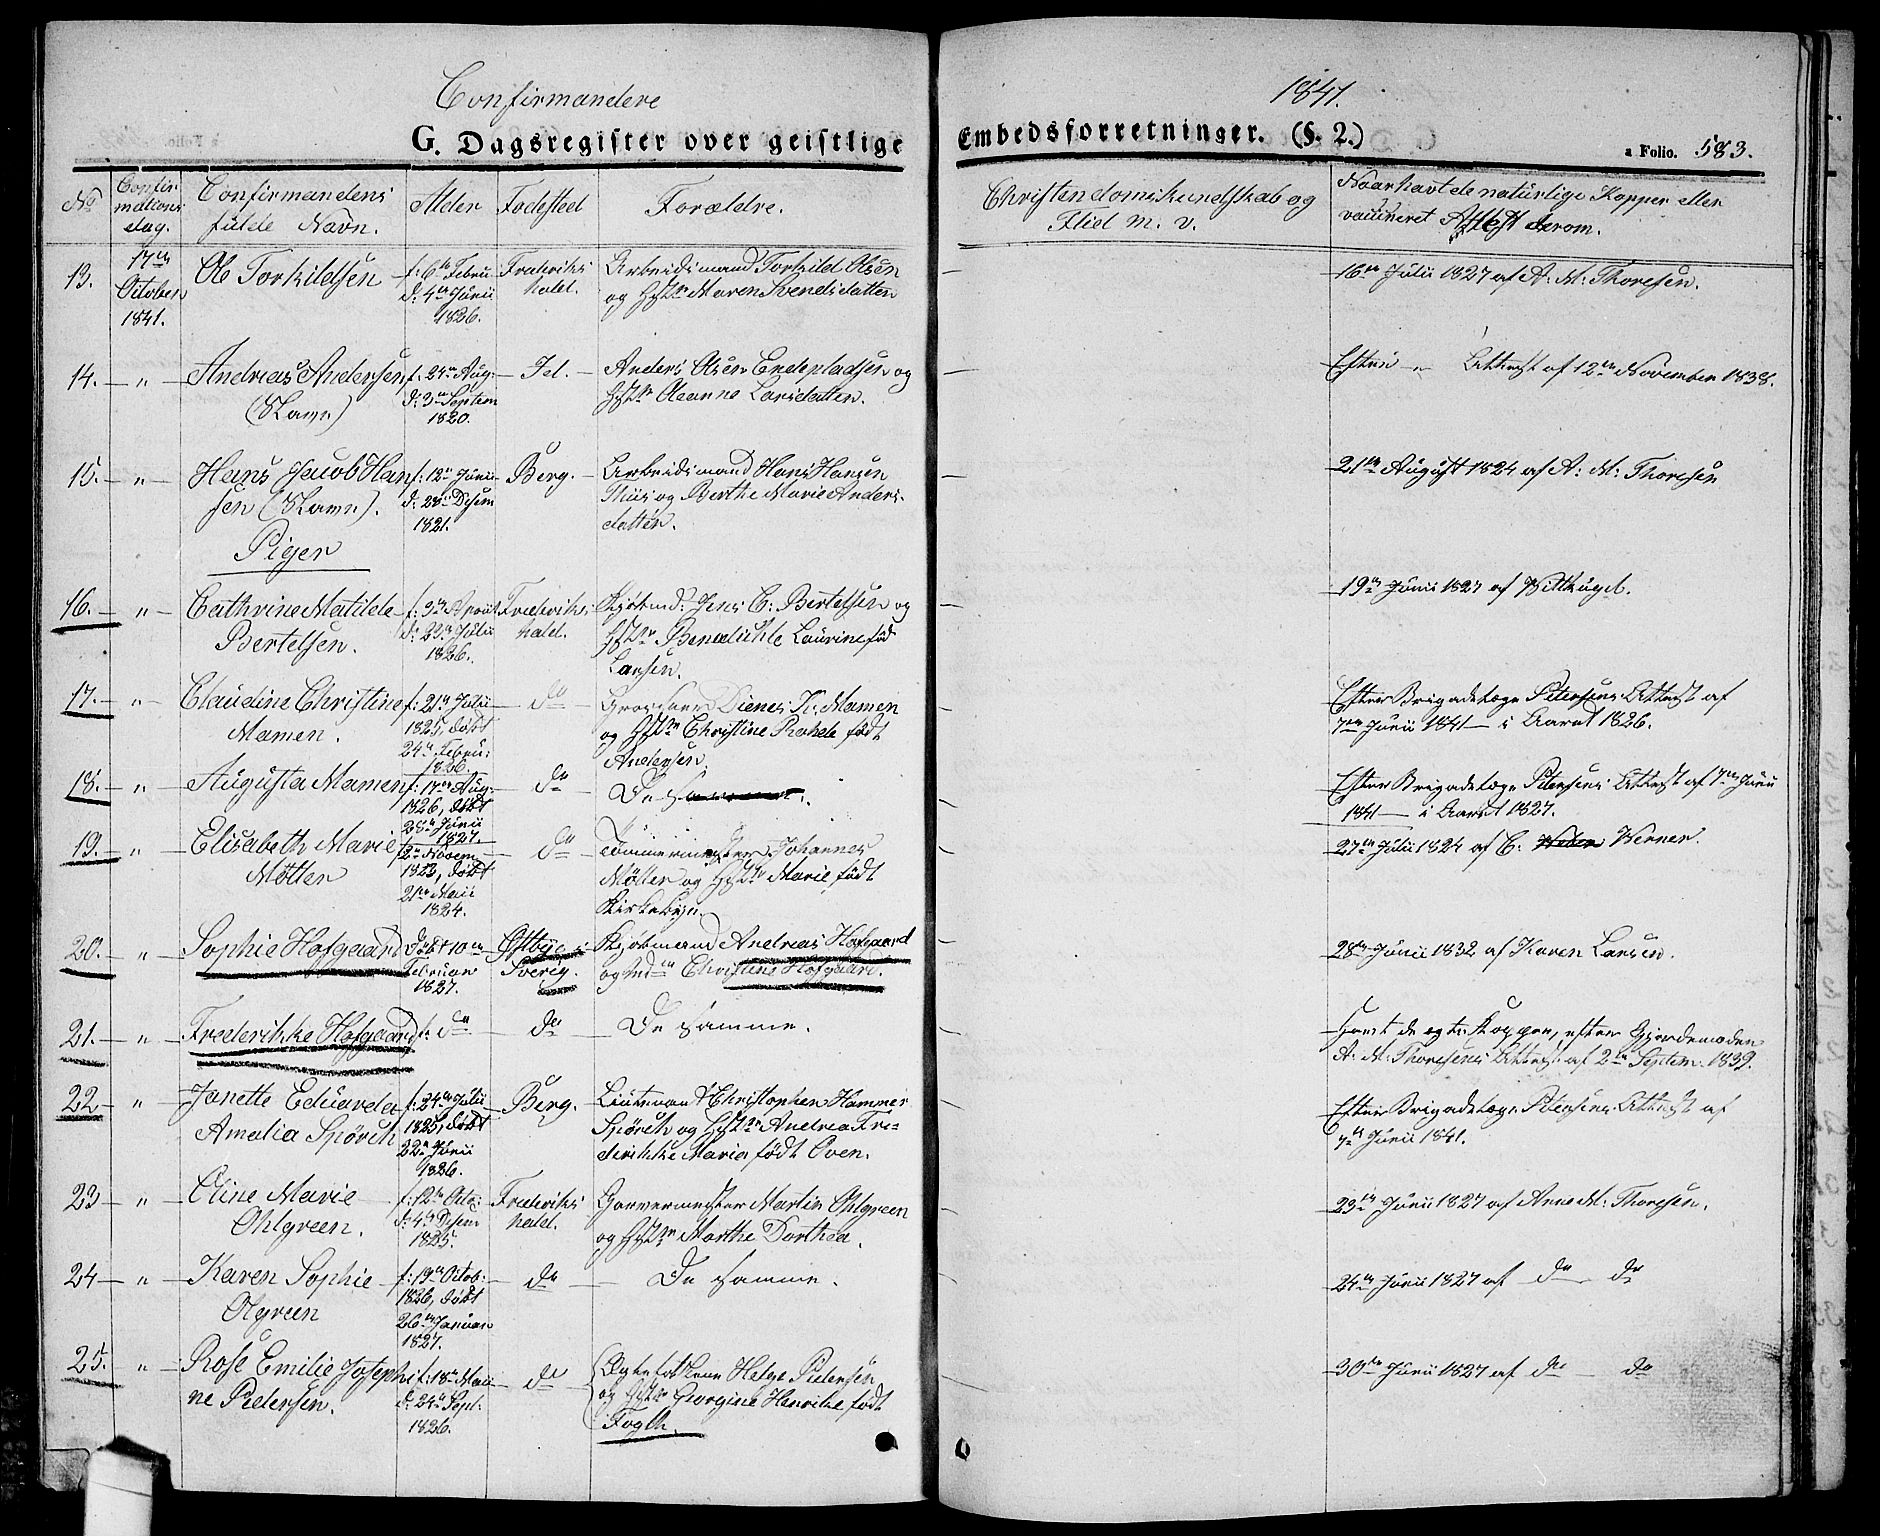 Confirmandere 1841.
G. Dagsregister over geistlige Embedsforretninger. (§. 2.) a Folio. 583.
No Confirmations dag. Confirmandens fulde Navn. Alder Fødested Forældre. Christendomskundskab og Flid m. v. Naar havt de naturlige Kopper eller vaccineret Attest derom.
13. 17de October 1841. Ole Torkildsen f: 6te Febru d: 4de Junii 1826. Frederikshald. Arbeidsmand Torkild Olsen og Hst: Maren Svendsdatter — 16de Julii 1827 af A: M: Thoresen.
14. — „ — Andreas Andersen (Slave) f. 24de Aug: d: 3de Septem 1820. Id. Anders Olsen Endepladsen og Hst: Oleanne Larsdatter. — Efter „ Attest af 12te November 1838.
15. — „ — Hans Jacob Hansen (Slave). f: 12te Junii d: 28de Desem 1821. Berg. Arbeidsmand Hans Hansen Thiis og Berthe Marie Andersdatter. — 21de August 1824 af A: M: Thoresen
Piger
16. — „ — Cathrine Matilde Bertelsen. f: 3de April d: 22de Julii 1826. Frederikshald. Kjøbmd: Jens C: Bertelsen og Hst: Benedichte Laurine fød Larsen. — 19de Junii 1827 af Wittkugel.
17. — „ — Claudine Christine Mamen. f: 21de Julii 1825, døbt 24de Febru: 1826. do Grosserer Dienes K: Mamen og Hst: Christine Rahele født Andersen. — Efter Brigadelæge Petersens Attest af 7de Junii 1841 — i Aaret 1826.
18. — „ — Augusta Mamen f: 17de Aug: 1826, døbt 28de Junii 1827. do De samme. — Efter Brigadelæge Petersens Attest af 7de Junii 1841 — i Aaret 1827.
19. — „ — Elisabeth Marie Møller f 2de Novem 1823, døbt 21de Maii 1824. do Tømmermester Johannes Møller og Hst: Marie født Kirkebye. — 27de Julii 1824 af C: Werner.
20. — „ — Sophie Hofgaard Født 10de Februar 1827. Østbye i Sverig. Kjøbmand Andreas Hofgaard og Christine Hofgaard. — 28de Junii 1832 af Karen Larsen.
21. „ — Frederikke Hofgaard f: do — do — De samme. — Havt de ægte Kopper, efter Gjordemoder A: M: Thoresens Attest af 2de Septem. 1839.
22 — „ — Janette Edvarda Amalia Spørck f: 24de Julii 1825, døbt 22de Junii 1826. Berg. Lieutenant Christopher Hammer Spørck og Hst: Andrea Frederikke Maria født Oven. — Efter Brigadelæge Petersens Attest af 7de Junii 1841.
23 „ — Eline Marie Ohlgreen. f: 12te Octo: d: 4de Desem 1825. Frederikshald. Garvermester Martin Ohlgreen og Hst: Marthe Dorthea. — 23de Junii 1827 af Anne M: Thoresen.
24 — „ — Karen Sophie Olgreen f: 19de Octob: 1826, døbt 26de Januar 1827. — do — De samme. — 24de Junii 1827 af do do
25. „ — Rose Emilie Josephine Pedersen. f: 18de Maii d: 24de Sept: 1826. do Ægtefolkene Helge Pedersen og Hst: Georgine Henrike født Fogth. — 30de Junii 1827 af do — do